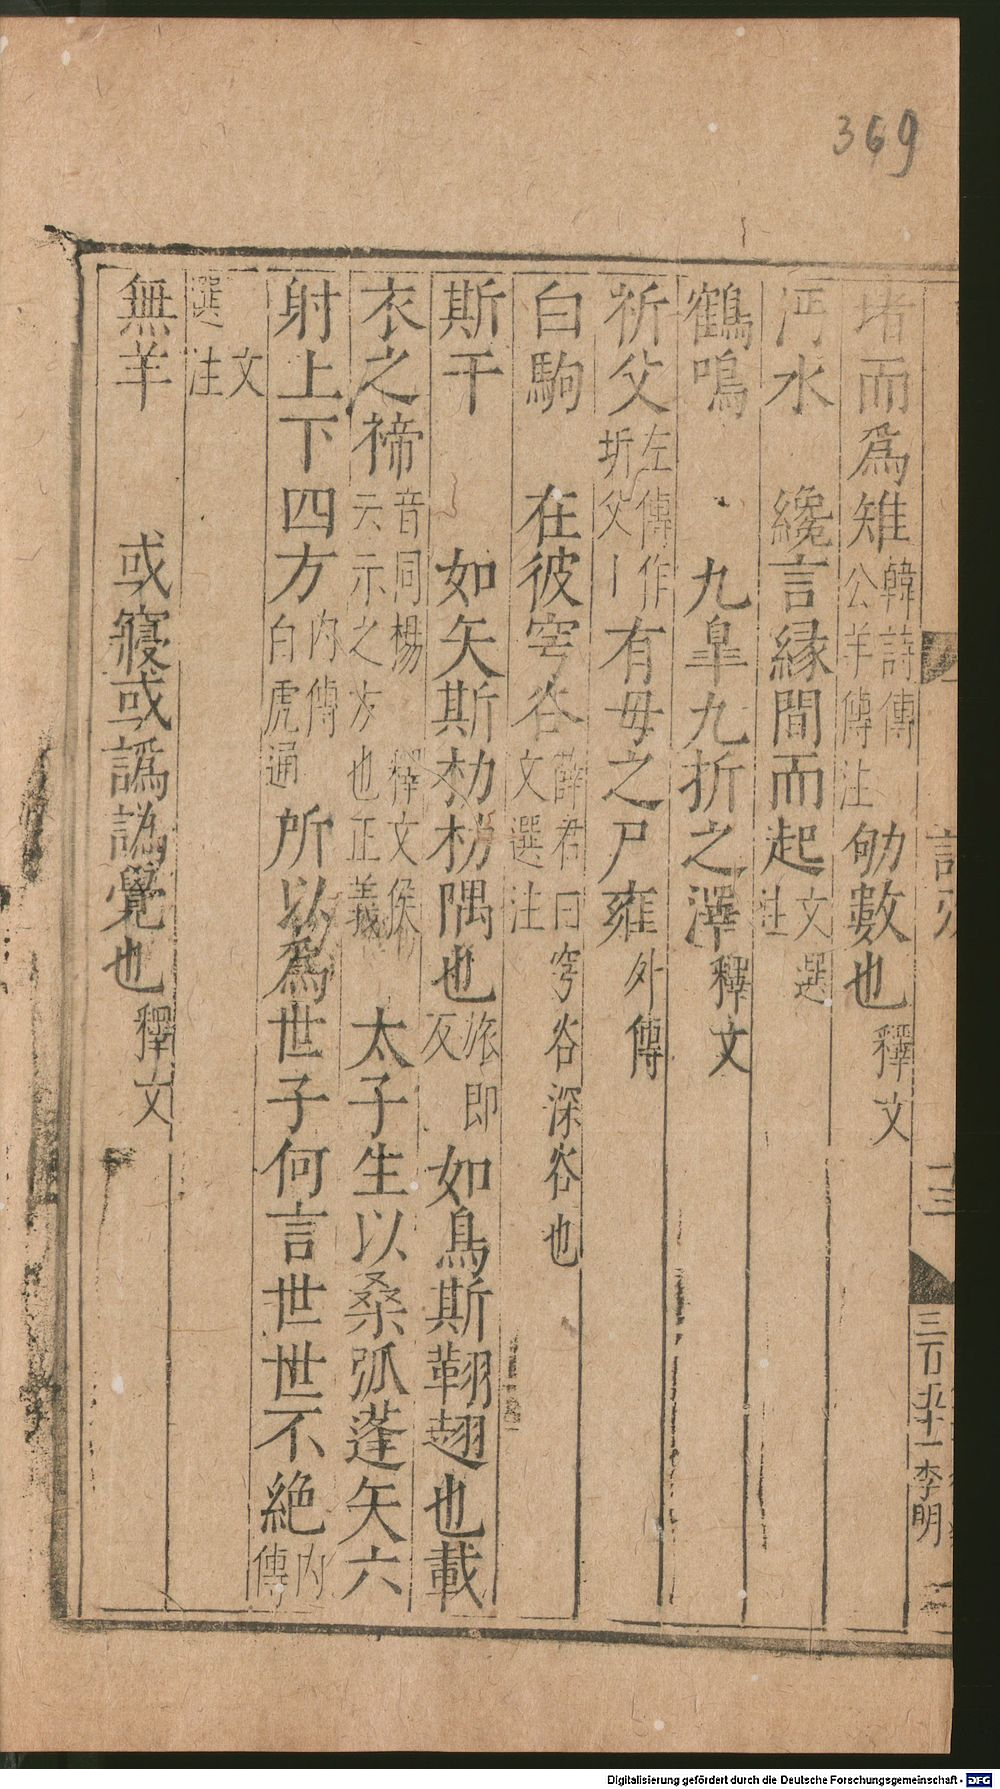 369
堵而爲雉韓詩傳公羊傳注 劬數也釋文
沔水 纔言緣間而起文選注
鶴鳴 九臯九折之澤釋文
祈父左傳作圻父 有毋之尸雍外傳
白駒 在彼穹谷薛君曰穹谷深谷也文選注
斯干 如矢斯朸朸隅也旅即反 如鳥斯翶翅也載
衣之禘音同楊云示之方也 釋文侯正義 太子生以桑弧蓬矢六
射上下四方內傳白虎通 所以爲世子何言世世不絶內傳
文選注
無羊 或寢或譌譌覺也釋文
三百九十一 李明
Digitalisierung gefördert durch die Deutsche Forschungsgemeinschaft - DFG